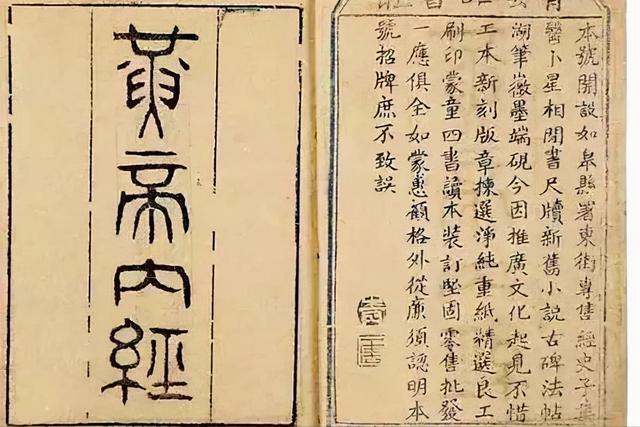 本號開設如皋縣署東街專售經史子集
醫卜星相閒書尺牘新舊小說古碑法帖
湖筆徽墨端硯今因推廣文化起見不惜
工本新刻版章揀選淨純重紙精選良工
刷印蒙童四書讀本裝訂堅固零售批發
一應俱全如蒙惠顧格外從廉須認明本
號招牌庶不致誤
黃帝內經